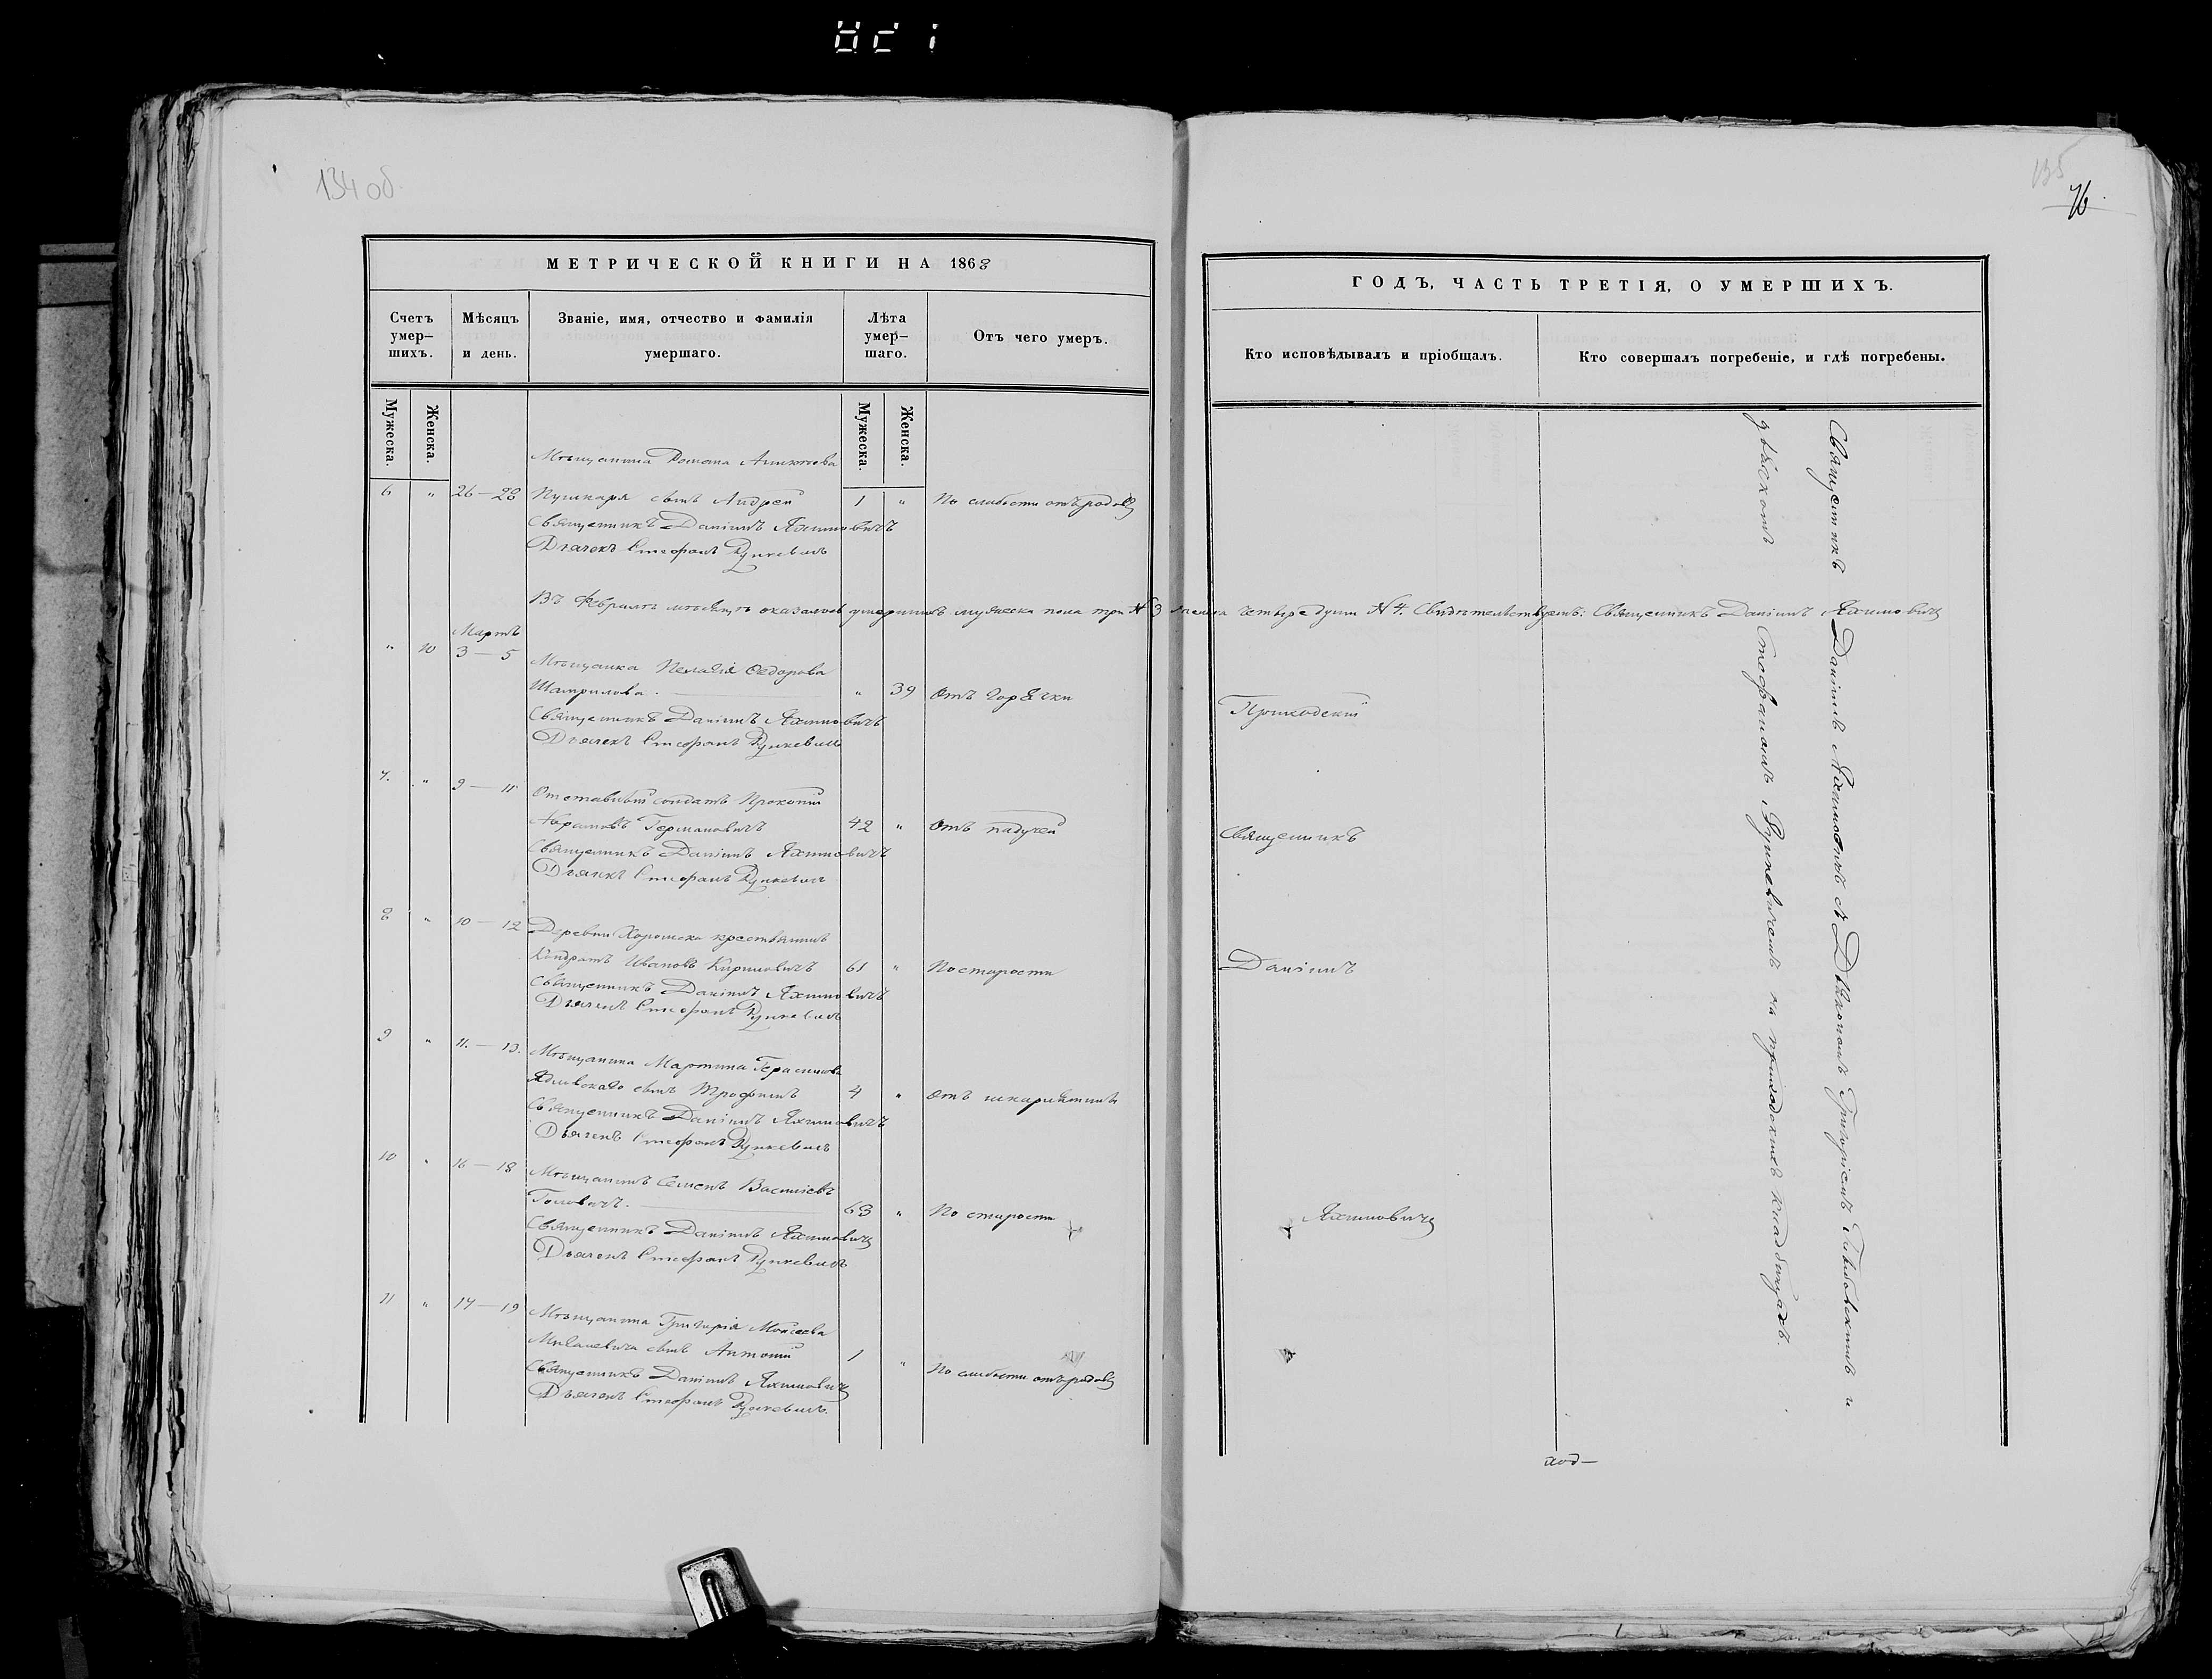 134 об.
МЕТРИЧЕСКОЙ КНИГИ НА 1868
Счетъ умер-шихъ.
Мѣсяцъ и день.
Званіе, имя, отчество и фамилія умершаго.
Лѣта умер-шаго.
Отъ чего умеръ.
Мужеска.
Женска.
Мужеска.
Женска.
Мѣщанина Романа
6 " 26—28 Пушкаря сынъ Андрей 1 " По слабости отъ родовъ
Священникъ Даніилъ Яхимовичъ
Дьячекъ Стефанъ Рункевичъ
Въ Февралѣ мѣсяцѣ оказалось умершихъ мужеска пола три № 3 женска четыре души № 4. Свидѣтельствуемъ: Священникъ Даніилъ Яхимовичъ
Мартъ
" 10 3—5 Мѣщанка Пелагія Федорова
Шаврилова. " 39 Отъ горячки
Священникъ Даніилъ Яхимовичъ
Дьячекъ Стефанъ Рункевичъ
7. " 9—11 Отставный солдатъ Прокопій
Авраамовъ Германовичъ 42 " Отъ падучей
Священникъ Даніилъ Яхимовичъ
Дьячекъ Стефанъ Рункевичъ
8 " 10—12 Деревни Хоромска крестьянинъ
Кондратъ Ивановъ Кириловичъ 61 " По старости
Священникъ Даніилъ Яхимовичъ
Дьячекъ Стефанъ Рункевичъ
9 " 11.—13. Мѣщанина Мартина Герасимова
сынъ Трофимъ 4 " Отъ шкарлятины
Священникъ Даніилъ Яхимовичъ
Дьячекъ Стефанъ Рункевичъ
10 " 16—18 Мѣщанинъ Семенъ Васильевъ
63 " По старости
Священникъ Даніилъ Яхимовичъ
Дьячекъ Стефанъ Рункевичъ
11 " 17—19 Мѣщанина Григорія Моисеева
сынъ Антоній 1 " По слабости отъ родовъ
Священникъ Даніилъ Яхимовичъ
Дьячекъ Стефанъ Рункевичъ.
135
76.
ГОДЪ, ЧАСТЬ ТРЕТІЯ, О УМЕРШИХЪ.
Кто исповѣдывалъ и пріобщалъ.
Кто совершалъ погребеніе, и гдѣ погребены.
Приходскій
Священникъ
Даніилъ
Яхимовичъ
Священникъ Даніилъ Яхимовичъ съ Діякономъ Григоріемъ и
дьячкомъ Стефаномъ Рункевичемъ на приходскихъ кладбищахъ.
под—